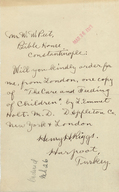 Mr. W. W. Peet,
Bible House,
Constantinople.
Will you kindly order for
me, from London, one copy
of "The Care and Feeding
of Children", by L. Emmett
Holt. M. D. Appleton Co.
New York & London
Henry H. Riggs.
Harpoot,
Turkey.